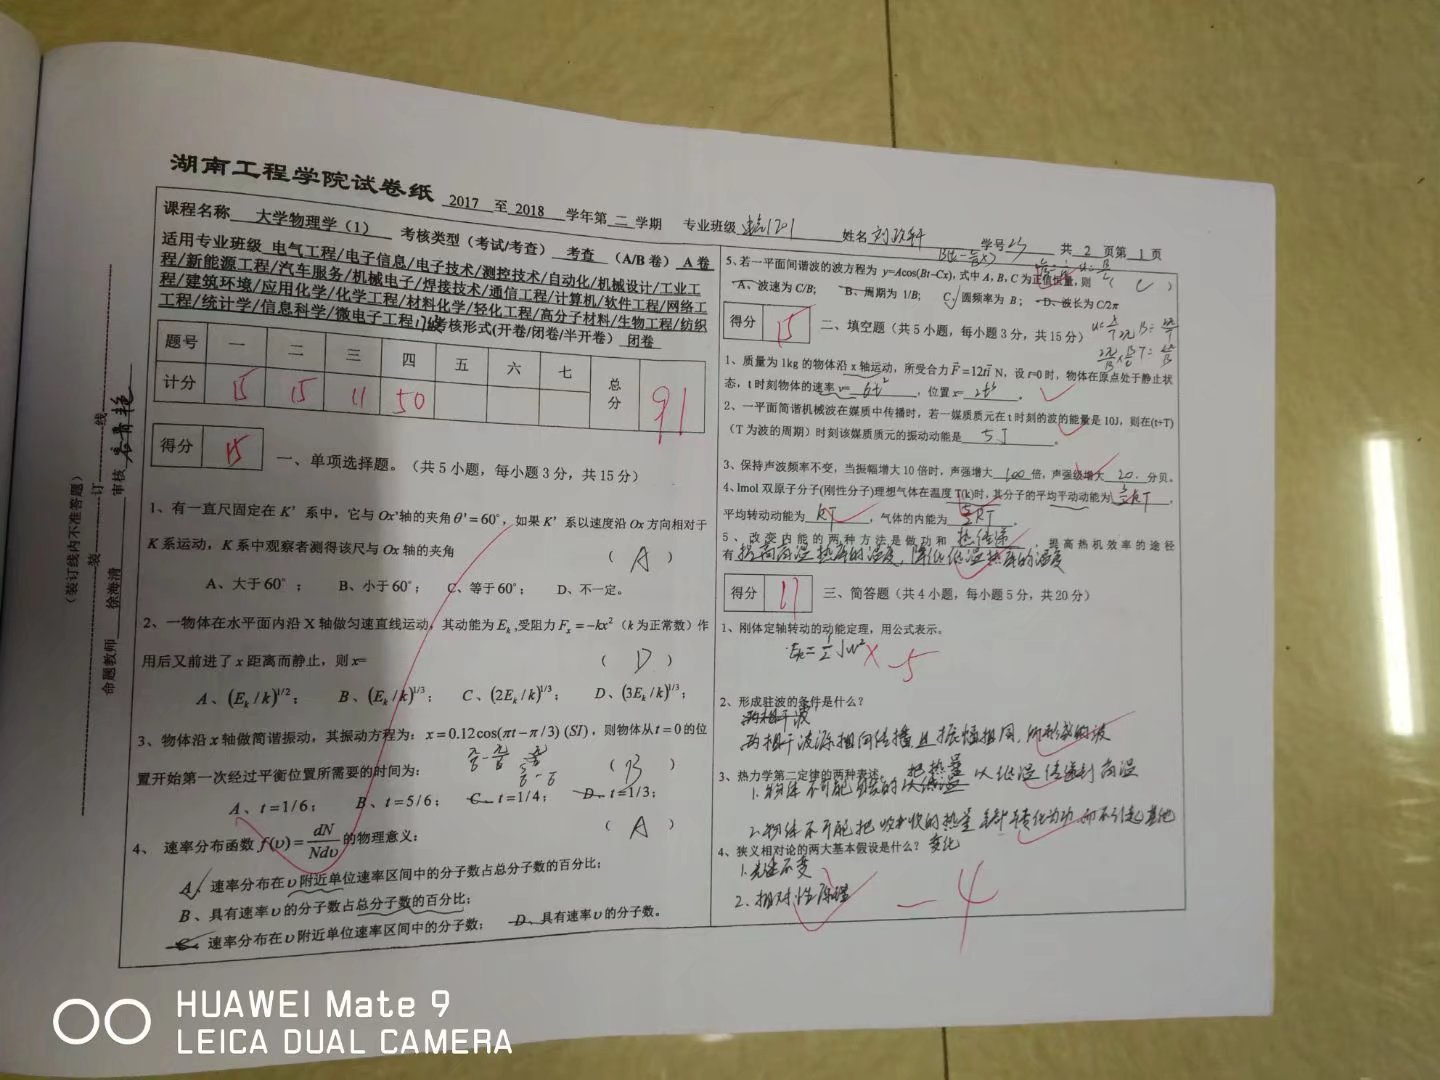 湖南工程学院试卷纸 2017 至 2018 学年第 二 学期 专业班级 姓名 学号 共 2 页第 1 页
课程名称 大学物理学（1） 考核类型（考试/考查） 考查 （A/B 卷） A 卷
适用专业班级 电气工程/电子信息/电子技术/测控技术/自动化/机械设计/工业工
程/新能源工程/汽车服务/机械电子/焊接技术/通信工程/计算机/软件工程/网络工
程/建筑环境/应用化学/化学工程/材料化学/轻化工程/高分子材料/生物工程/纺织
工程/统计学/信息科学/微电子工程 考核形式(开卷/闭卷/半开卷） 闭卷
题号 一 二 三 四 五 六 七 总分
计分 15 15 11 50 91
得分 15 一、单项选择题。（共 5 小题，每小题 3 分，共 15 分）
1、有一直尺固定在 K′ 系中，它与 Ox′轴的夹角 θ′=60°，如果 K′ 系以速度沿 Ox 方向相对于
K 系运动，K 系中观察者测得该尺与 Ox 轴的夹角 （ A ）
A、大于 60° ； B、小于 60°； C、等于 60°； D、不一定。
2、一物体在水平面内沿 X 轴做匀速直线运动，其动能为 E_k,受阻力 F_x=−kx²（k 为正常数）作
用后又前进了 x 距离而静止，则 x= （ D ）
A、(E_k/k)^1/2； B、(E_k/k)^1/3； C、(2E_k/k)^1/3； D、(3E_k/k)^1/3；
3、物体沿 x 轴做简谐振动，其振动方程为：x=0.12cos(πt−π/3) (SI)，则物体从 t=0 的位
置开始第一次经过平衡位置所需要的时间为： （ B ）
A、t=1/6； B、t=5/6； C、t=1/4； D、t=1/3；
4、 速率分布函数 f(υ)=dN/Ndυ 的物理意义： （ A ）
A、速率分布在 υ 附近单位速率区间中的分子数占总分子数的百分比；
B、具有速率 υ 的分子数占总分子数的百分比；
C、速率分布在 υ 附近单位速率区间中的分子数； D、具有速率 υ 的分子数。
5、若一平面间谐波的波方程为 y=Acos(Bt−Cx), 式中 A, B, C 为正值恒量, 则 （ C ）
A、波速为 C/B； B、周期为 1/B； C、圆频率为 B； D、波长为 C/2π
得分 15 二、填空题（共 5 小题，每小题 3 分，共 15 分）
1、质量为 1kg 的物体沿 x 轴运动，所受合力 F=12ti N，设 t=0 时，物体在原点处于静止状
态，t 时刻物体的速率 v= 6t² ，位置 x= 2t³ 。
2、一平面简谐机械波在媒质中传播时，若一媒质质元在 t 时刻的波的能量是 10J，则在(t+T)
（T 为波的周期）时刻该媒质质元的振动动能是 5J 。
3、保持声波频率不变，当振幅增大 10 倍时，声强增大 100 倍，声强级增大 20 分贝。
4、1mol 双原子分子(刚性分子)理想气体在温度 T(k)时，其分子的平均平动动能为 3/2 kT ，
平均转动动能为 kT ，气体的内能为 5/2 RT 。
5、改变内能的两种方法是做功和 热传递 ，提高热机效率的途径
有 提高高温热库的温度，降低低温热库的温度
得分 11 三、简答题（共 4 小题，每小题 5 分，共 20 分）
1、刚体定轴转动的动能定理，用公式表示。
E_k=1/2 Jω² × −5
2、形成驻波的条件是什么？
两相干波
两相干波源相向传播且振幅相同，所形成的波
3、热力学第二定律的两种表述。 把热量
1.物体不可能自发的从低温 从低温传递到高温
2.物体不可能把吸收的热量全部转化为功而不引起其他
4、狭义相对论的两大基本假设是什么？ 变化
1.光速不变
2.相对性原理
−4
（装订线内不准答题）
装 订 线
命题教师 徐海清 审核
HUAWEI Mate 9
LEICA DUAL CAMERA